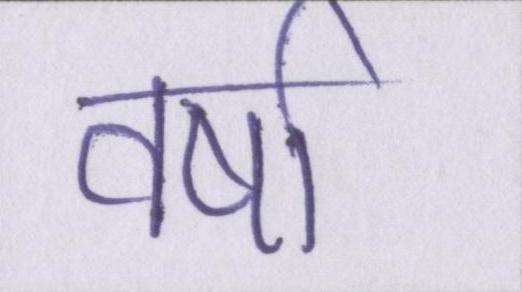 वर्षा